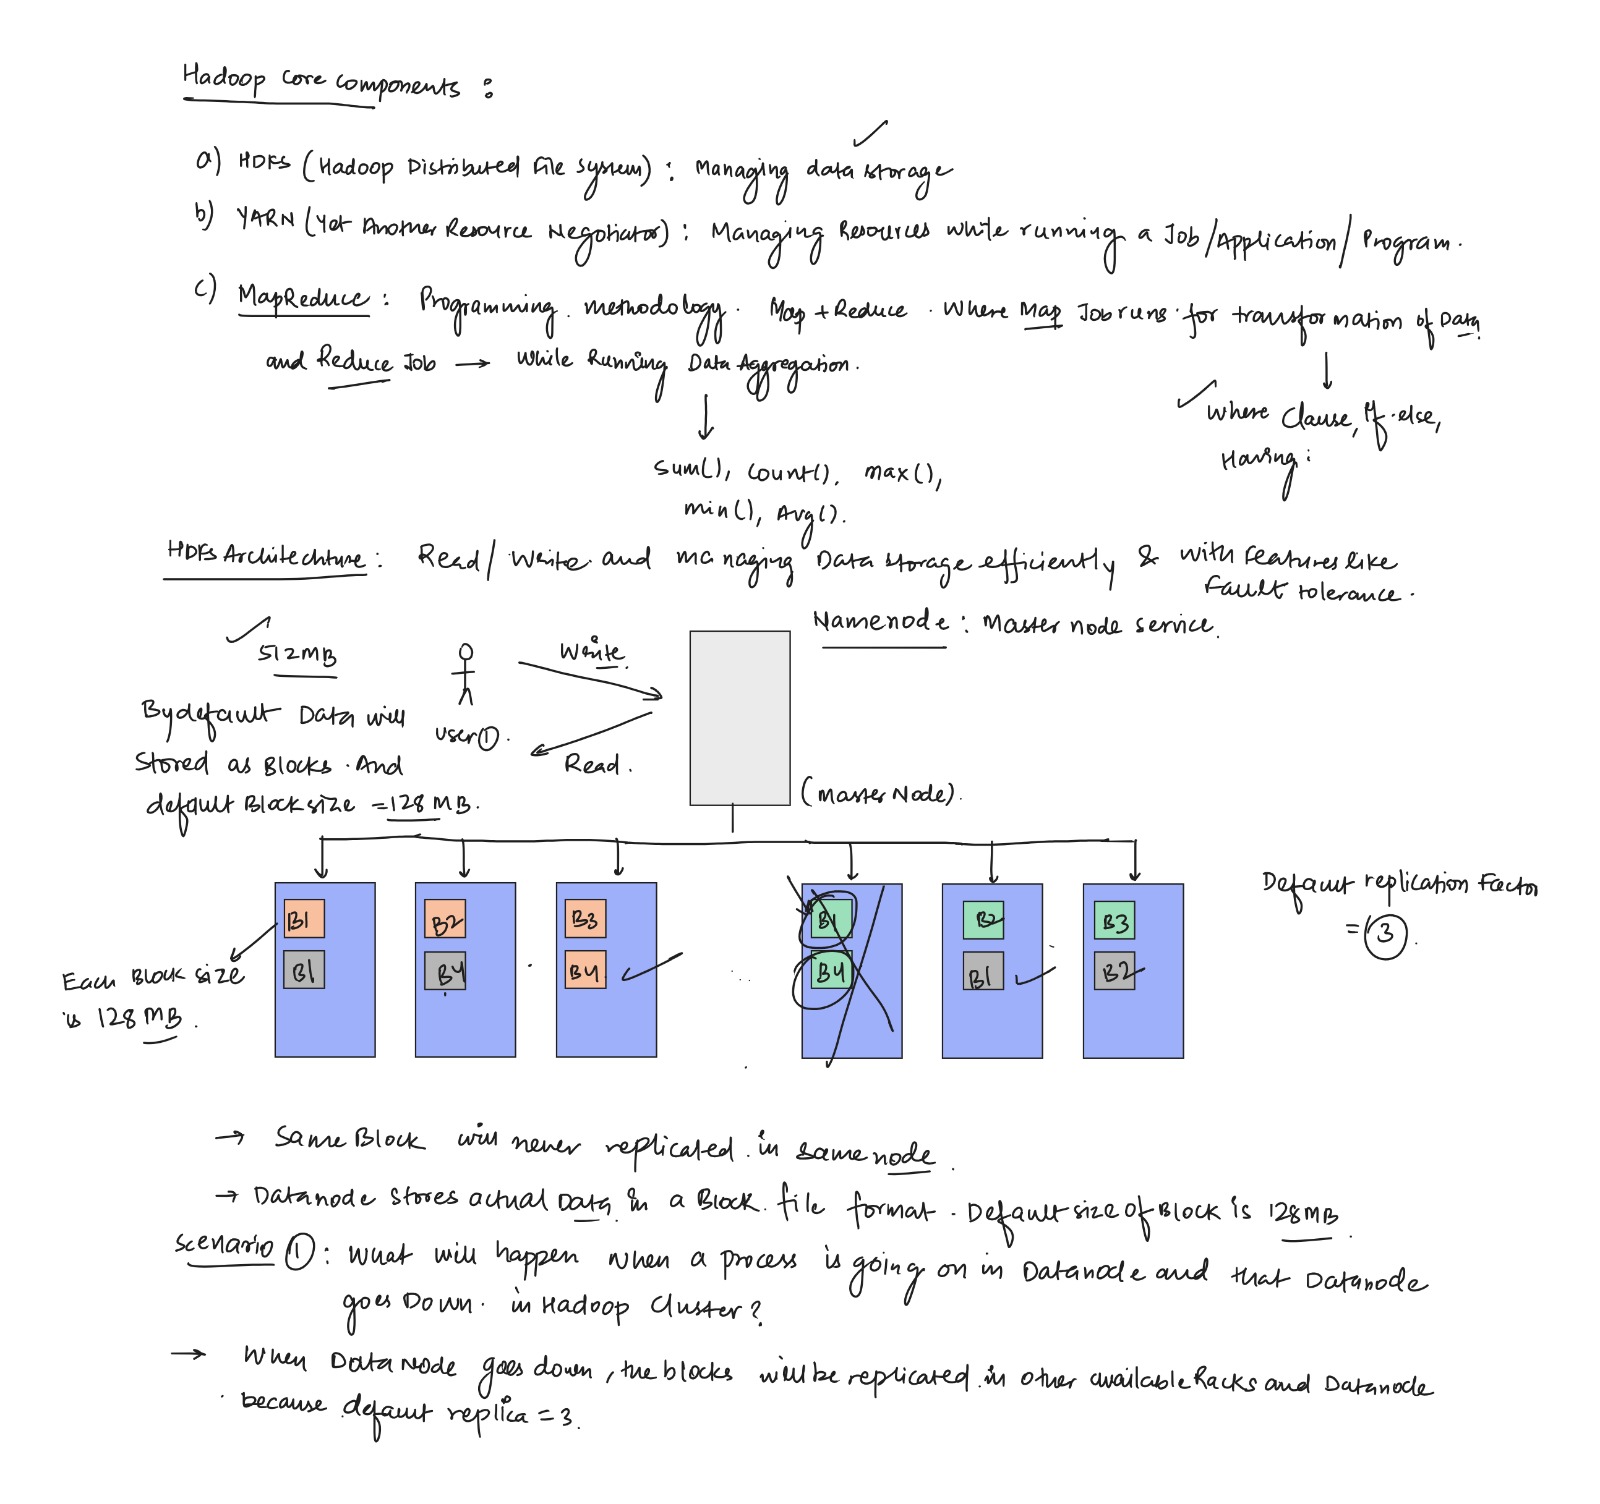 Hadoop Core Components :
a) HDFS (Hadoop Distributed File System) : Managing data storage
b) YARN (Yet Another Resource Negotiator) : Managing Resources while running a Job/Application/Program.
c) MapReduce : Programming methodology. Map + Reduce. Where Map Job runs for transformation of Data
and Reduce Job → While Running Data Aggregation.
Where Clause, If-else,
Having:
sum(), Count(), max(),
min(), Avg().
HDFS Architechture : Read/Write and managing Data storage efficiently & with Features like
Fault tolerance.
Namenode : Master node service.
512MB
Write.
By default Data will
user ①.
Stored as Blocks. And
Read.
default Block size = 128 MB.
(Master Node).
B1 B2 B3 B1 B2 B3
B1 B4 B4 B4 B1 B2
Default replication Factor
= 3.
Each Block size
is 128 MB.
→ Same Block will never replicated in same node.
→ Datanode stores actual Data in a Block file format. Default size of Block is 128MB.
Scenario ① : What will happen when a process is going on in Datanode and that Datanode
goes Down. in Hadoop Cluster?
→ When DataNode goes down, the blocks will be replicated in other available Racks and Datanode
because default replica = 3.